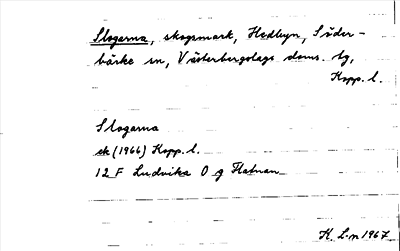 Slogarna, skogsmark, Hedbyn, Söder-
bärke sn, Västerbergslags doms. tg,
Kopp. l.
Slogarna
ek (1966) Kopp. l.
12 F Ludvika 0 g
K. L-n 1967